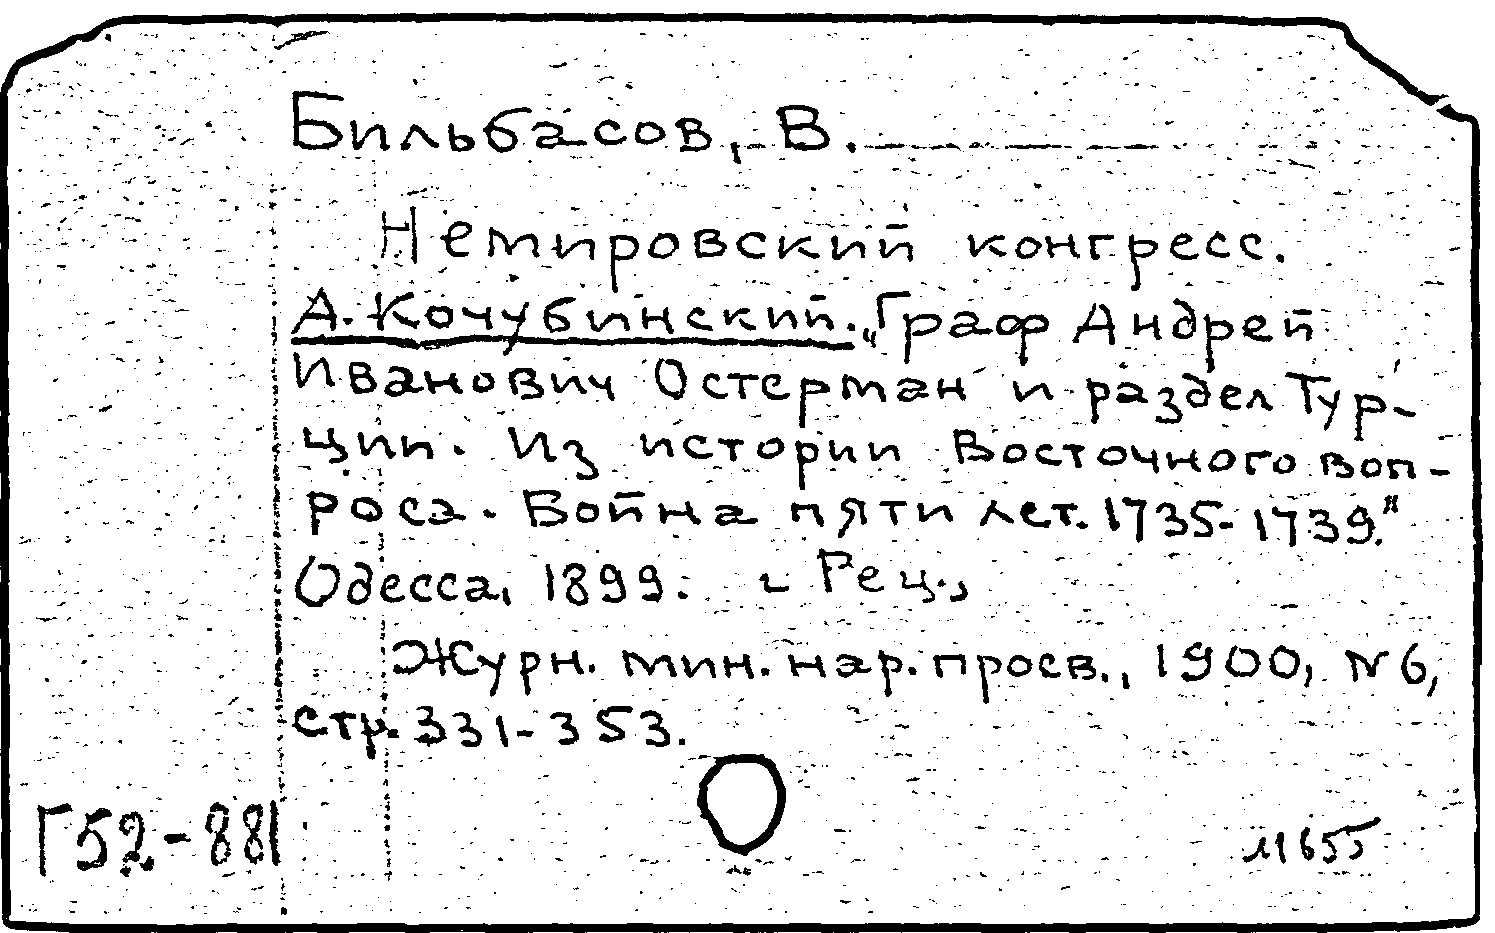 Бильбасов, В.
Немировский конгресс.
А. Кочубинский. „Граф Андрей
Иванович Остерман и раздел Тур-
ции. Из истории Восточного воп-
роса. Война пяти лет. 1735-1739."
Одесса, 1899. - Рец.,
Журн. мин. нар. просв., 1900, N 6,
стр. 331-353.
Г52-881